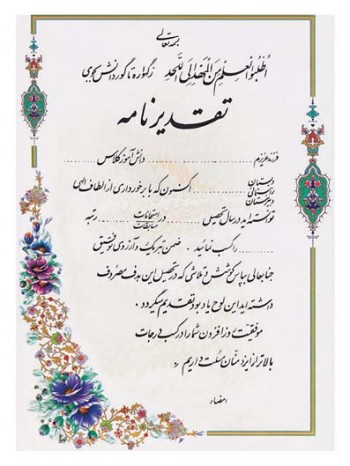 بسمه تعالی
اطلبوا العلم من المهد الی اللحد ز گهواره تا گور دانش بجوی
تقدیرنامه
فرزند عزیزم ............ دانش آموز کلاس ............
دبستان
راهنمائی
دبیرستان ............ اکنون که با برخورداری از الطاف الهی
توانسته اید در سال تحصیلی ............ در امتحانات
مسابقات ............ رتبه
............ را کسب نمائید . ضمن تبریک و آرزوی توفیق
جنابعالی بپاس کوشش و تلاشی که در تحصیل این هدف مصروف
داشته اید این لوح یادبود تقدیم میگردد .
موفقیت روزافزون شما را در کسب درجات
بالاتر از ایزد منان مسئلت داریم
امضاء